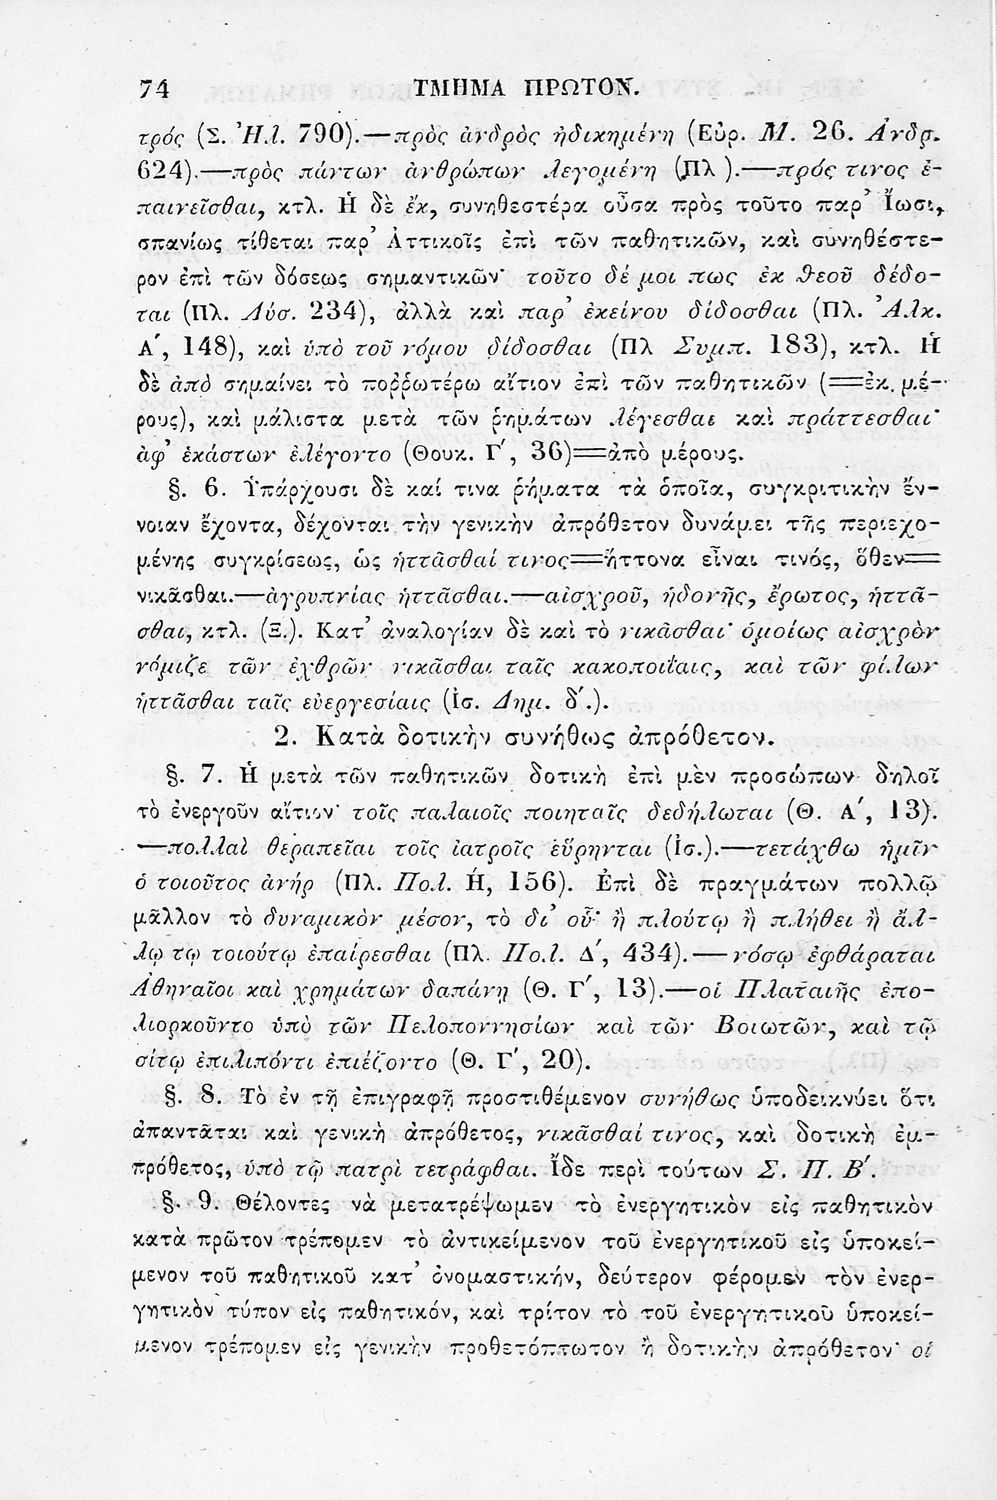 74 ΤΜΗΜΑ ΠΡΩΤΟΝ.
τρός (Σ. Ἠλ. 790).—πρὸς ἀνδρὸς ἠδικημένη (Εὐρ. Μ. 26. Ἀνδρ.
624).—πρὸς πάντων ἀνθρώπων λεγομένη (Πλ ).—πρός τινος ἐ-
παινεῖσθαι, κτλ. Ἡ δὲ ἐκ, συνηθεστέρα οὖσα πρὸς τοῦτο παρ᾽ Ἴωσι,
σπανίως τίθεται παρ᾽ Ἀττικοῖς ἐπὶ τῶν παθητικῶν, καὶ συνηθέστε-
ρον ἐπὶ τῶν δόσεως σημαντικῶν· τοῦτο δέ μοι πως ἐκ ϑεοῦ δέδο-
ται (Πλ. Λύσ. 234), ἀλλὰ καὶ παρ᾽ ἐκείνου δίδοσθαι (Πλ. Ἀλκ.
Α΄, 148), καὶ ὑπὸ τοῦ νόμου δίδοσθαι (Πλ Συμπ. 183), κτλ. Ἡ
δὲ ἀπὸ σημαίνει τὸ ποῤῥωτέρω αἴτιον ἐπὶ τῶν παθητικῶν (=ἐκ μέ-
ρους), καὶ μάλιστα μετὰ τῶν ῥημάτων λέγεσθαι καὶ πράττεσθαι·
ἀφ᾽ ἑκάστων ἐλέγοντο (Θουκ. Γ΄, 36)=ἀπὸ μέρους.
§. 6. Ὑπάρχουσι δὲ καί τινα ῥήματα τὰ ὁποῖα, συγκριτικὴν ἔν-
νοιαν ἔχοντα, δέχονται τὴν γενικὴν ἀπρόθετον δυνάμει τῆς περιεχο-
μένης συγκρίσεως, ὡς ἡττᾶσθαί τινος=ἥττονα εἶναι τινός, ὅθεν=
νικᾶσθαι.—ἀγρυπνίας ἡττᾶσθαι.—αἰσχροῦ, ἡδονῆς, ἔρωτος, ἡττᾶ-
σθαι, κτλ. (Ξ.). Κατ᾽ ἀναλογίαν δὲ καὶ τὸ νικᾶσθαι· ὁμοίως αἰσχρὸν
νόμιζε τῶν ἐχθρῶν νικᾶσθαι ταῖς κακοποιΐαις, καὶ τῶν φίλων
ἡττᾶσθαι ταῖς εὐεργεσίαις (Ἰσ. Δημ. δ΄.).
2. Κατὰ δοτικὴν συνήθως ἀπρόθετον.
§. 7. Ἡ μετὰ τῶν παθητικῶν δοτικὴ ἐπὶ μὲν προσώπων δηλοῖ
τὸ ἐνεργοῦν αἴτιον· τοῖς παλαιοῖς ποιηταῖς δεδήλωται (Θ. Α΄, 13).
—πολλαὶ θεραπεῖαι τοῖς ἰατροῖς εὕρηνται (Ἰσ.).—τετάχθω ἡμῖν
ὁ τοιοῦτος ἀνήρ (Πλ. Πολ. Ή, 156). Ἐπὶ δὲ πραγμάτων πολλῷ
μᾶλλον τὸ δυναμικὸν μέσον, τὸ δι᾽ οὗ· ἢ πλούτῳ ἢ πλήθει ἢ ἄλ-
λῳ τῳ τοιούτῳ ἐπαίρεσθαι (Πλ. Πολ. Δ΄, 434).—νόσῳ ἐφθάραται
Ἀθηναῖοι καὶ χρημάτων δαπάνῃ (Θ. Γ΄, 13).—οἱ Πλαταιῆς ἐπο-
λιορκοῦντο ὑπὸ τῶν Πελοποννησίων καὶ τῶν Βοιωτῶν, καὶ τῷ
σίτῳ ἐπιλιπόντι ἐπιέζοντο (Θ. Γ΄, 20).
§. 8. Τὸ ἐν τῇ ἐπιγραφῇ προστιθέμενον συνήθως ὑποδεικνύει ὅτι
ἀπαντᾶται καὶ γενικὴ ἀπρόθετος, νικᾶσθαί τινος, καὶ δοτικὴ ἐμ-
πρόθετος, ὑπὸ τῷ πατρὶ τετράφθαι. Ἴδε περὶ τούτων Σ. Π. Β΄.
§. 9. Θέλοντες νὰ μετατρέψωμεν τὸ ἐνεργητικὸν εἰς παθητικὸν
κατὰ πρῶτον τρέπομεν τὸ ἀντικείμενον τοῦ ἐνεργητικοῦ εἰς ὑποκεί-
μενον τοῦ παθητικοῦ κατ᾽ ὀνομαστικήν, δεύτερον φέρομεν τὸν ἐνερ-
γητικὸν τύπον εἰς παθητικόν, καὶ τρίτον τὸ τοῦ ἐνεργητικοῦ ὑποκεί-
μενον τρέπομεν εἰς γενικὴν προθετόπτωτον ἢ δοτικὴν ἀπρόθετον· οἱ